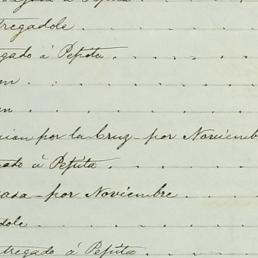 tregadole
gado á Pepita
m
m
cion por la Cruz por Noviemb
gado á Pepita
casa por Noviembre
dole
tregado á Pepita